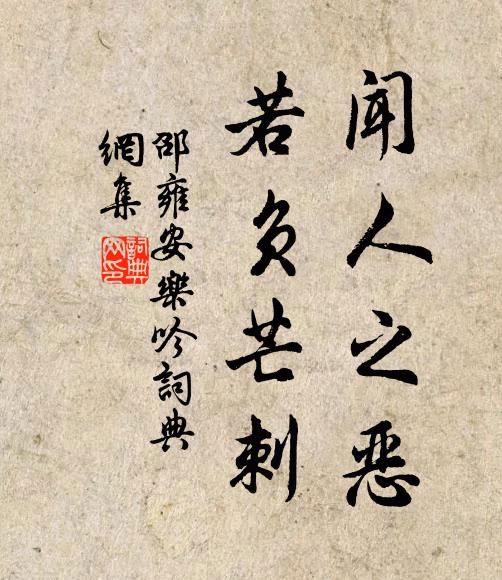 聞人之惡
若負芒刺
邵雍安樂吟詞典
網集
詞典
网印